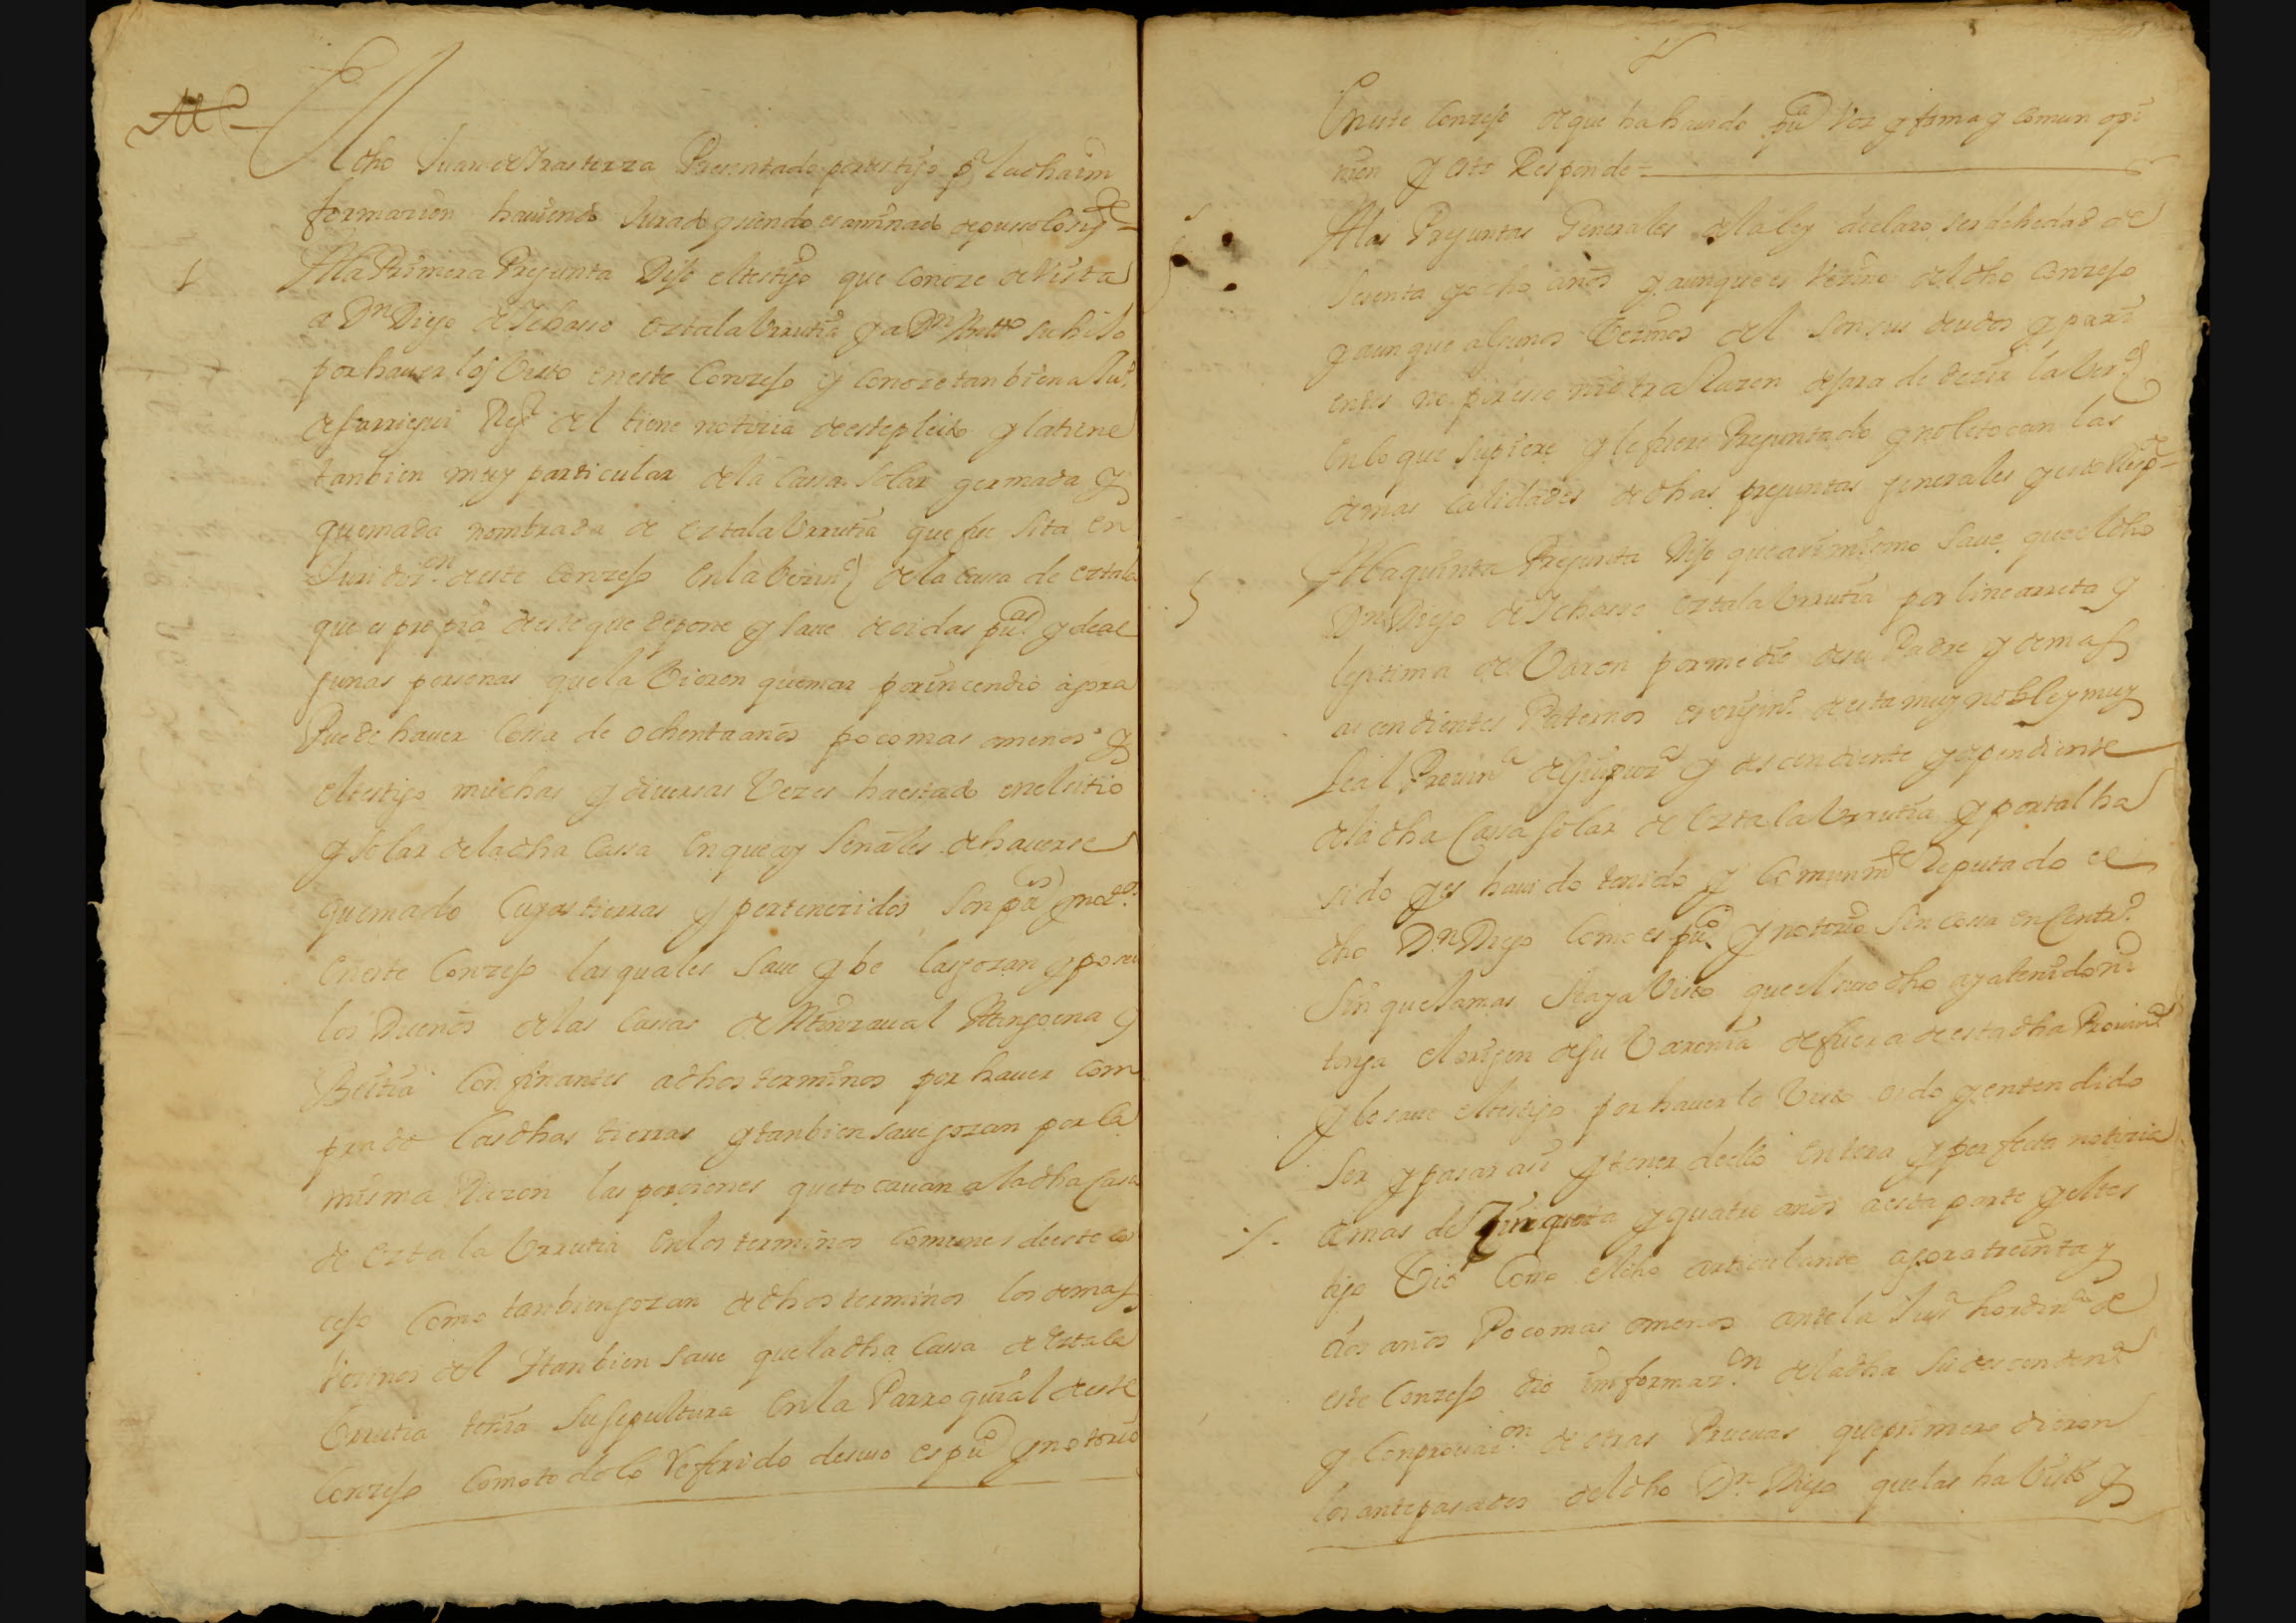 El dho Juan de Trasterza Presentado por testigo pa la dha in
formazion hauiendo Jurado y siendo examinado depusso lo sigte
1 A la Primera Pregunta Dijo el testigo que Conoze de Vista
a Dn Diego de Ichasso oztala Vrrutia y a Dn su hijo
por hauer los Visto en este Conzejo y Conoze tanbien a Jun
de Larriegui Regr del tiene notizia de este pleito y la tiene
tanbien muy particular de la Cassa Solar germada y
quemada nombrada de oztala Vrrutia que fue Sita en
Juridizn de este Conzejo en la Vezind de la cassa de oztala
que es propia de este que depone y saue de oidas pucas y de al
gunas personas que la Vieron quemar por incendio agora
Puede hauer Cossa de ochenta años poco mas o menos y
el testigo muchas y diuersas Vezes ha estado en el sitio
y solar de la dha Cassa en que ay Señales de hauerse
quemado Cuyas tierras y pertenezidos Son pucos y notos
en este Conzejo las quales saue y be las gozan y poseen
los Dueños de las Cassas de Minzaual Mengoena y
Beitia Confinantes a dhos terminos por hauer Com
prado las dhas tierras y tanbien saue gozan por la
misma Razon las porziones que tocauan a la dha Casa
de oztala Vrrutia en los terminos Comunes de este Con
cejo Como tanbien gozan de dhos terminos los demas
Vezinos del Y tanbien saue que la dha Cassa de oztala
Vrrutia tenia Su sepultura en la Parroquial de este
Conzejo Como todo lo Referido desuso es puco y notorio
En este Conzejo de que ha hauido pua Voz y fama y Comun opi
nion y esto Responde =
A las Preguntas Generales de la ley declaro ser de hedad de
sesenta y ocho años y aunque es Vezino del dho Conzejo
y aunque algunos Vezinos del Son sus deudos y pari
entes no por esso ni otra Razon dejara de dezir la Verd
en lo que Supiere y le fuere Preguntado y no le tocan las
demas Calidades de dhas preguntas generales y esto Respde
5 A la quinta Pregunta Dijo que asimismo Saue que el dho
Dn Diego de Ichasso oztala Vrrutia por linea recta y
legitima de Varon por medio de su Padre y demas
aszendientes Paternos es originro de esta muy noble y muy
Leal Prouina de Guipuza y descendiente y dependiente
de la dha Cassa solar de oztala Vrrutia y por tal ha
sido y es hauido tenido y Comunmte Reputado el
dho Dn Diego Como es puco y notorio Sin cossa en Contro
Sin que Jamas Se aya Visto que el susodho aya tenido ni
tenga el origen de su Varonia de fuera de esta dha Prouina
y lo saue el testigo por hauerlo Visto oido y entendido
Ser y pasar asi y tener de ello entera y perfecta notizia
de mas de Zinquenta y quatro años a esta parte y el tes
tigo Vio Como el dho articulante agora treinta y
dos años Poco mas o menos ante la Jusa hordina de
este Conzejo dio informazon de la dha Su descendena
y Conprouazon de otras Prueuas que primero dieron
los antepasados del dho Dn Diego que las ha Visto y